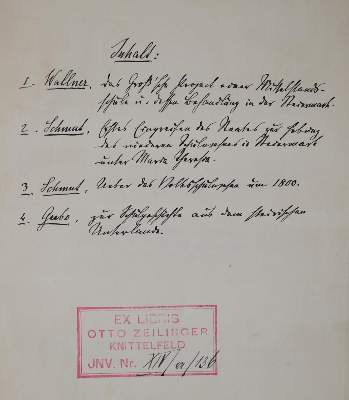 Inhalt:
1. Wallner, das Groß'sche Project einer Mittelstands-
schule u. dessen Behandlung in der Steiermark.
2. Schmut, Erstes Eingreifen des Staates zur Hebung
des niederen Schulwesens in Steiermark
unter Maria Theresia.
3. Schmut, Ueber das Volksschulwesen um 1800.
4. Gubo, zur Schulgeschichte aus dem steirischen
Unterlande.
EX LIBRIS
OTTO ZEILINGER
KNITTELFELD
JNV. Nr. XIV/a/136